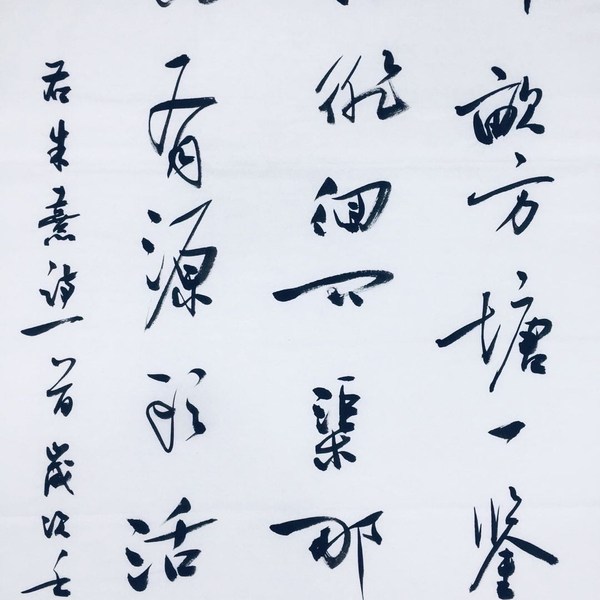 畝方塘一鑒
徘徊问渠那
有源頭活
右朱熹詩一首歲次壬